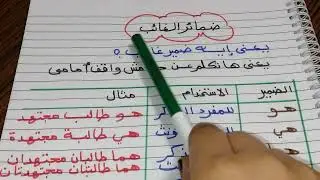 ضمائر الغائب
يعنى إيه ضمير غائب ؟
يعنى هانتكلم عن مش واقف أمامى
الضمير الاستخدام مثال
هو للمفرد هو طالب مجتهد
هي هي طالبة مجتهدة
هما هما طالبان مجتهدان
هما طالبتان مجتهدتان